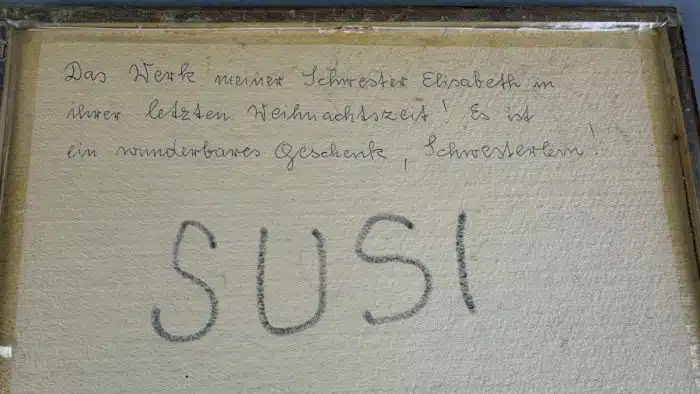 Das Werk meiner Schwester Elisabeth in
ihrer letzten Weihnachtszeit! Es ist
ein wunderbares Geschenk, Schwesterlein!
SUSI